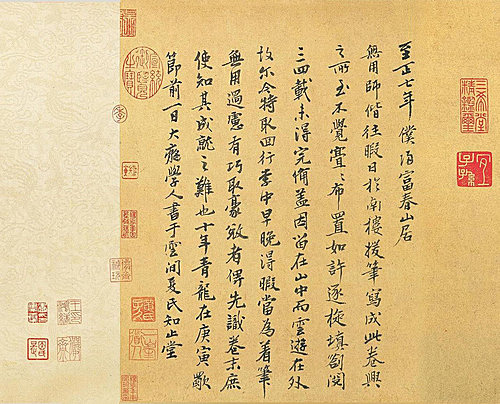 三希堂精鑑璽
宜子孫
至正七年僕歸富春山居
無用師偕往暇日於南樓援筆寫成此卷興
之所至不覺亹亹布置如許逐旋填劄閱
三四載未得完備蓋因留在山中而雲遊在外
故爾今特取回行李中早晚得暇當為着筆
無用過慮有巧取豪敚者俾先識卷末庶
使知其成就之難也十年青龍在庚寅歜
節前一日大癡學人書于雲間夏氏知止堂